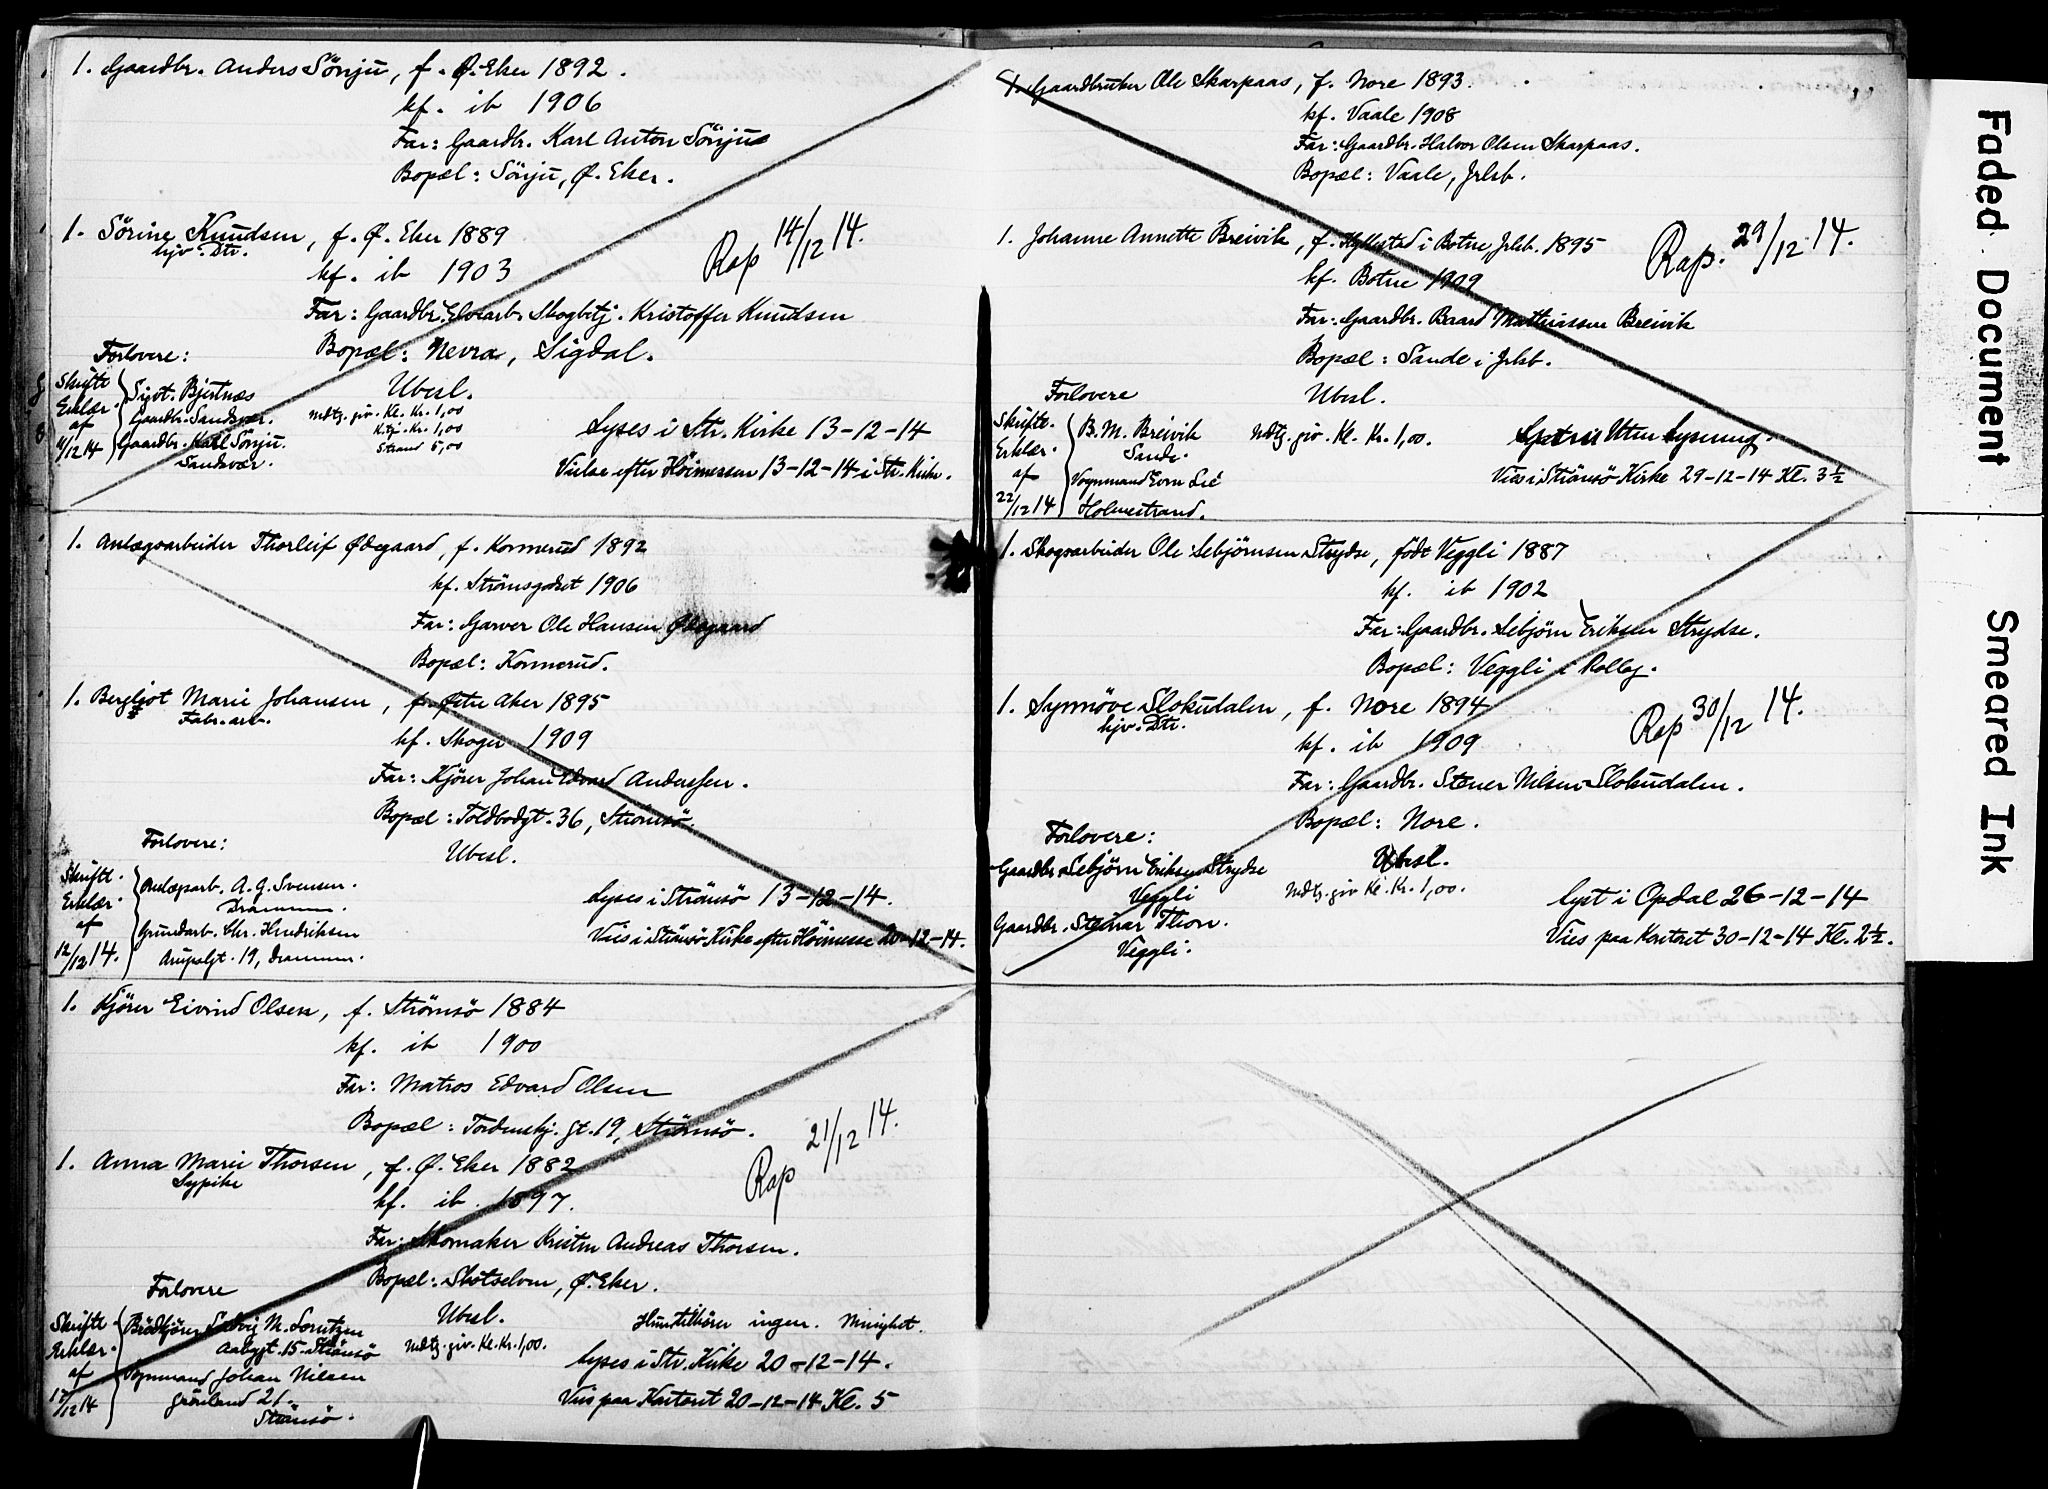 1. Gaardbr. Anders Sönju, f. Ø. Eker 1892.
kf. ib 1906
Far: Gaardbr. Karl Anton Sönju
Bopæl: Sönju, Ø. Eker.
1. Sörine Knudsen, f. Ø. Eker 1889
hjv. Dtr.
kf. ib 1903
Rap 14/12 14.
Far: Gaardbr. Skogbtj. Kristoffer Knudsen
Bopæl: Nevra, Sigdal.
Forlovere:
Skriftl. Erklær. af 11/12 14
Sigv. Bjertnæs
Gaardbr. Sandsvær.
Gaardbr. Karl Sönju.
Sandsvær.
Ubesl.
Mdtg. giv. Kl. Kr. 1,00
Kr. 1,00
Strand 5,00
Lyses i Str. Kirke 13-12-14
Vielse efter Höimessen 13-12-14 i Str. Kirke.
1. Anlægsarbeider Thorleif Ødegaard, f. Konnerud 1892
kf. Strömsgodset 1906
Far: Garver Ole Hansen Ødegaard
Bopæl: Konnerud.
1. Bergljot Marie Johansen, f. Østre Aker 1895
Fabr. arb.
kf. Skoger 1909
Far: Kjörer Johan Edvard Anderssen.
Bopæl: Toldbodgt. 36, Strömsö.
Forlovere:
Ubesl.
Skriftl. Erklær. af 12/12 14.
Anlægsarb. A. G. Svensen.
Drammen.
Grundarb. Chr. Hendriksen
19, Drammen.
Lyses i Strömsö 13-12-14.
Vies i Strömsö Kirke efter Höimesse 20-12-14.
1. Kjörer Eivind Olsen, f. Strömsö 1884
kf. ib 1900
Far: Matros Edvard Olsen
Bopæl: Tordenskj. gt. 19, Strömsö.
Rap 21/12 14.
1. Anna Marie Thorsen, f. Ø. Eker 1882
Sypike
kf. ib. 1897.
Far: Skomaker Kristen Andreas Thorsen.
Bopæl: Skotselven, Ø. Eker.
Forlovere
Ubesl.
Skriftl. Erklær. af 17/12 14
Brödkjörer Ludvig M. Lorentzen
15 Strömsö
Vognmand Johan Nilsen
Grönland 21.
Strömsö.
Mdtg. giv. Kl. Kr. 1,00.
ingen. Menighet.
Lyses i Str. Kirke 20-12-14.
Vies paa Kontoret 20-12-14 Kl. 5
1. Gaardbruker Ole Skarpaas, f. Nore 1893.
kf. Vaale 1908
Far: Gaardbr. Halvor Olsen Skarpaas.
Bopæl: Vaale, Jrlsb.
1. Johanne Annette Breivik, f. Hyllestad i Botne, Jrlsb. 1895
Rap. 29/12 14.
kf. Botne 1909
Far: Gaardbr. Baard Mathiassen Breivik
Bopæl: Sande i Jrlsb.
Forlovere
Ubesl.
Skriftl. Erklær. af 22/12 14
B. M. Breivik
Sande.
Vognmand Even Lie
Holmestrand.
Mdtg. giv. Kl. Kr. 1,00.
Uten Lysning.
Vies i Strömsö Kirke 29-12-14 Kl. 3½
1. Skogsarbeider Ole Sebjörnsen Strydse, født Veggli 1887
kf. ib 1902
Far: Gaardbr. Sebjörn Eriksen Strydse.
Bopæl: Veggli i Rollag.
1. Synnöve Slokudalen, f. Nore 1894
hjv. Dtr.
Rap 30/12 14.
kf. ib 1909
Far: Gaardbr. Stener Nilsen Slokudalen.
Bopæl: Nore.
Forlovere:
Ubesl.
Gaardbr. Sebjörn Eriksen Strydse
Veggli
Gaardbr. Steinar Thon.
Veggli.
Mdtg. giv Kl. Kr. 1,00.
Lyst i Opdal 26-12-14
Vies paa Kontoret 30-12-14 Kl. 2½.
Faded Document
Smeared Ink